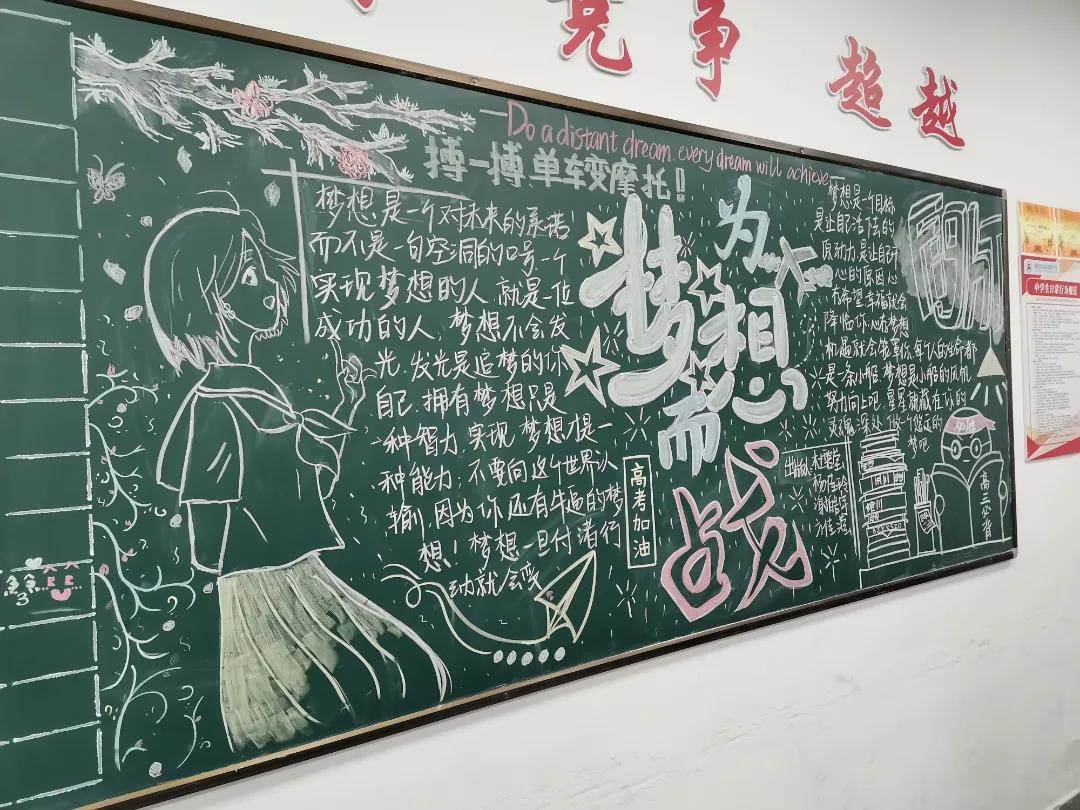 竞争 超越
Do a distant dream. every dream will achieve
搏一搏单车变摩托!
梦想是一个对未来的承诺
而不是一句空洞的口号,一个
实现梦想的人,就是一位
成功的人,梦想不会发
光,发光是追梦的你
自己,拥有梦想只是
一种智力,实现梦想才是一
种能力,不要向这个世界认
输,因为你还有牛逼的梦
想!梦想一旦付诸行
动就会变
高考加油
为
梦想
而
战
梦想是一个目标
是让自己活下去的
原动力,是让自己开
心的原因,心
有希望,幸福就会
降临你,心有梦想,
机遇就会笼罩你,每个人的生命都
是一条小船,梦想是小船的风帆
努力向上吧,星星就藏在你的
梦吧
出版人:
高三必背
中学生日常行为规范